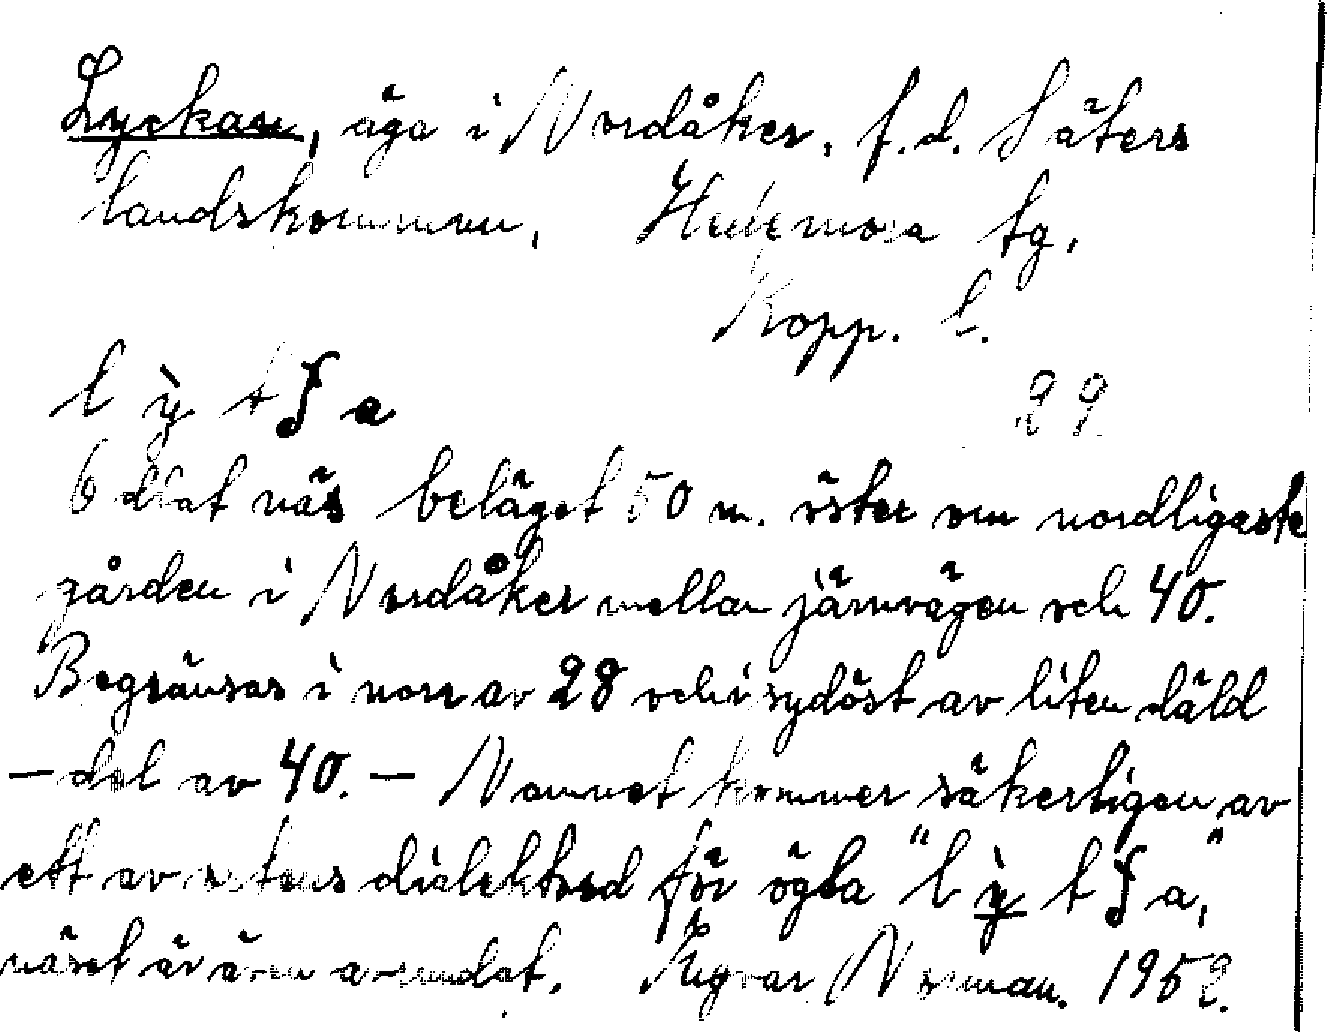 Lyckan, äga i Nordåker, f.d. Säters
landskommun, Hedemora tg,
Kopp. l.
l ỳ t ʃ a
29
Odlat näs beläget 50 m. öster om nordligaste
gården i Nordåker mellan järnvägen och 40.
Begränsas i norr av 28 och i sydöst av liten däld
— del av 40. — Namnet kommer säkerligen av
ett av ortens dialektord för ögla "l ỳ t ʃ a,"
näset är även avrundat. Ingvar Norman. 1952.